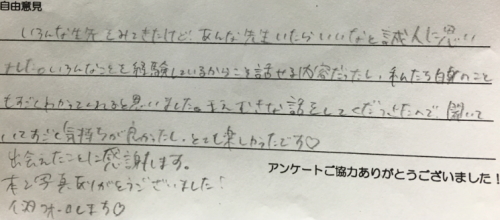 自由意見
いろんな先生をみてきたけど、あんな先生いたらいいなと 人に思い
ました。いろんなことを経験しているからこそ話せる内容だったし、私たち自身のこと
もすごくわかってくれると思いました。 な話をしてくださったので、聞いて
いてすごく気持ちが良かったし、とても楽しかったです♡
出会えたことに感謝します。
本と写真ありがとうございました!
フォローします♡
アンケートご協力ありがとうございました!